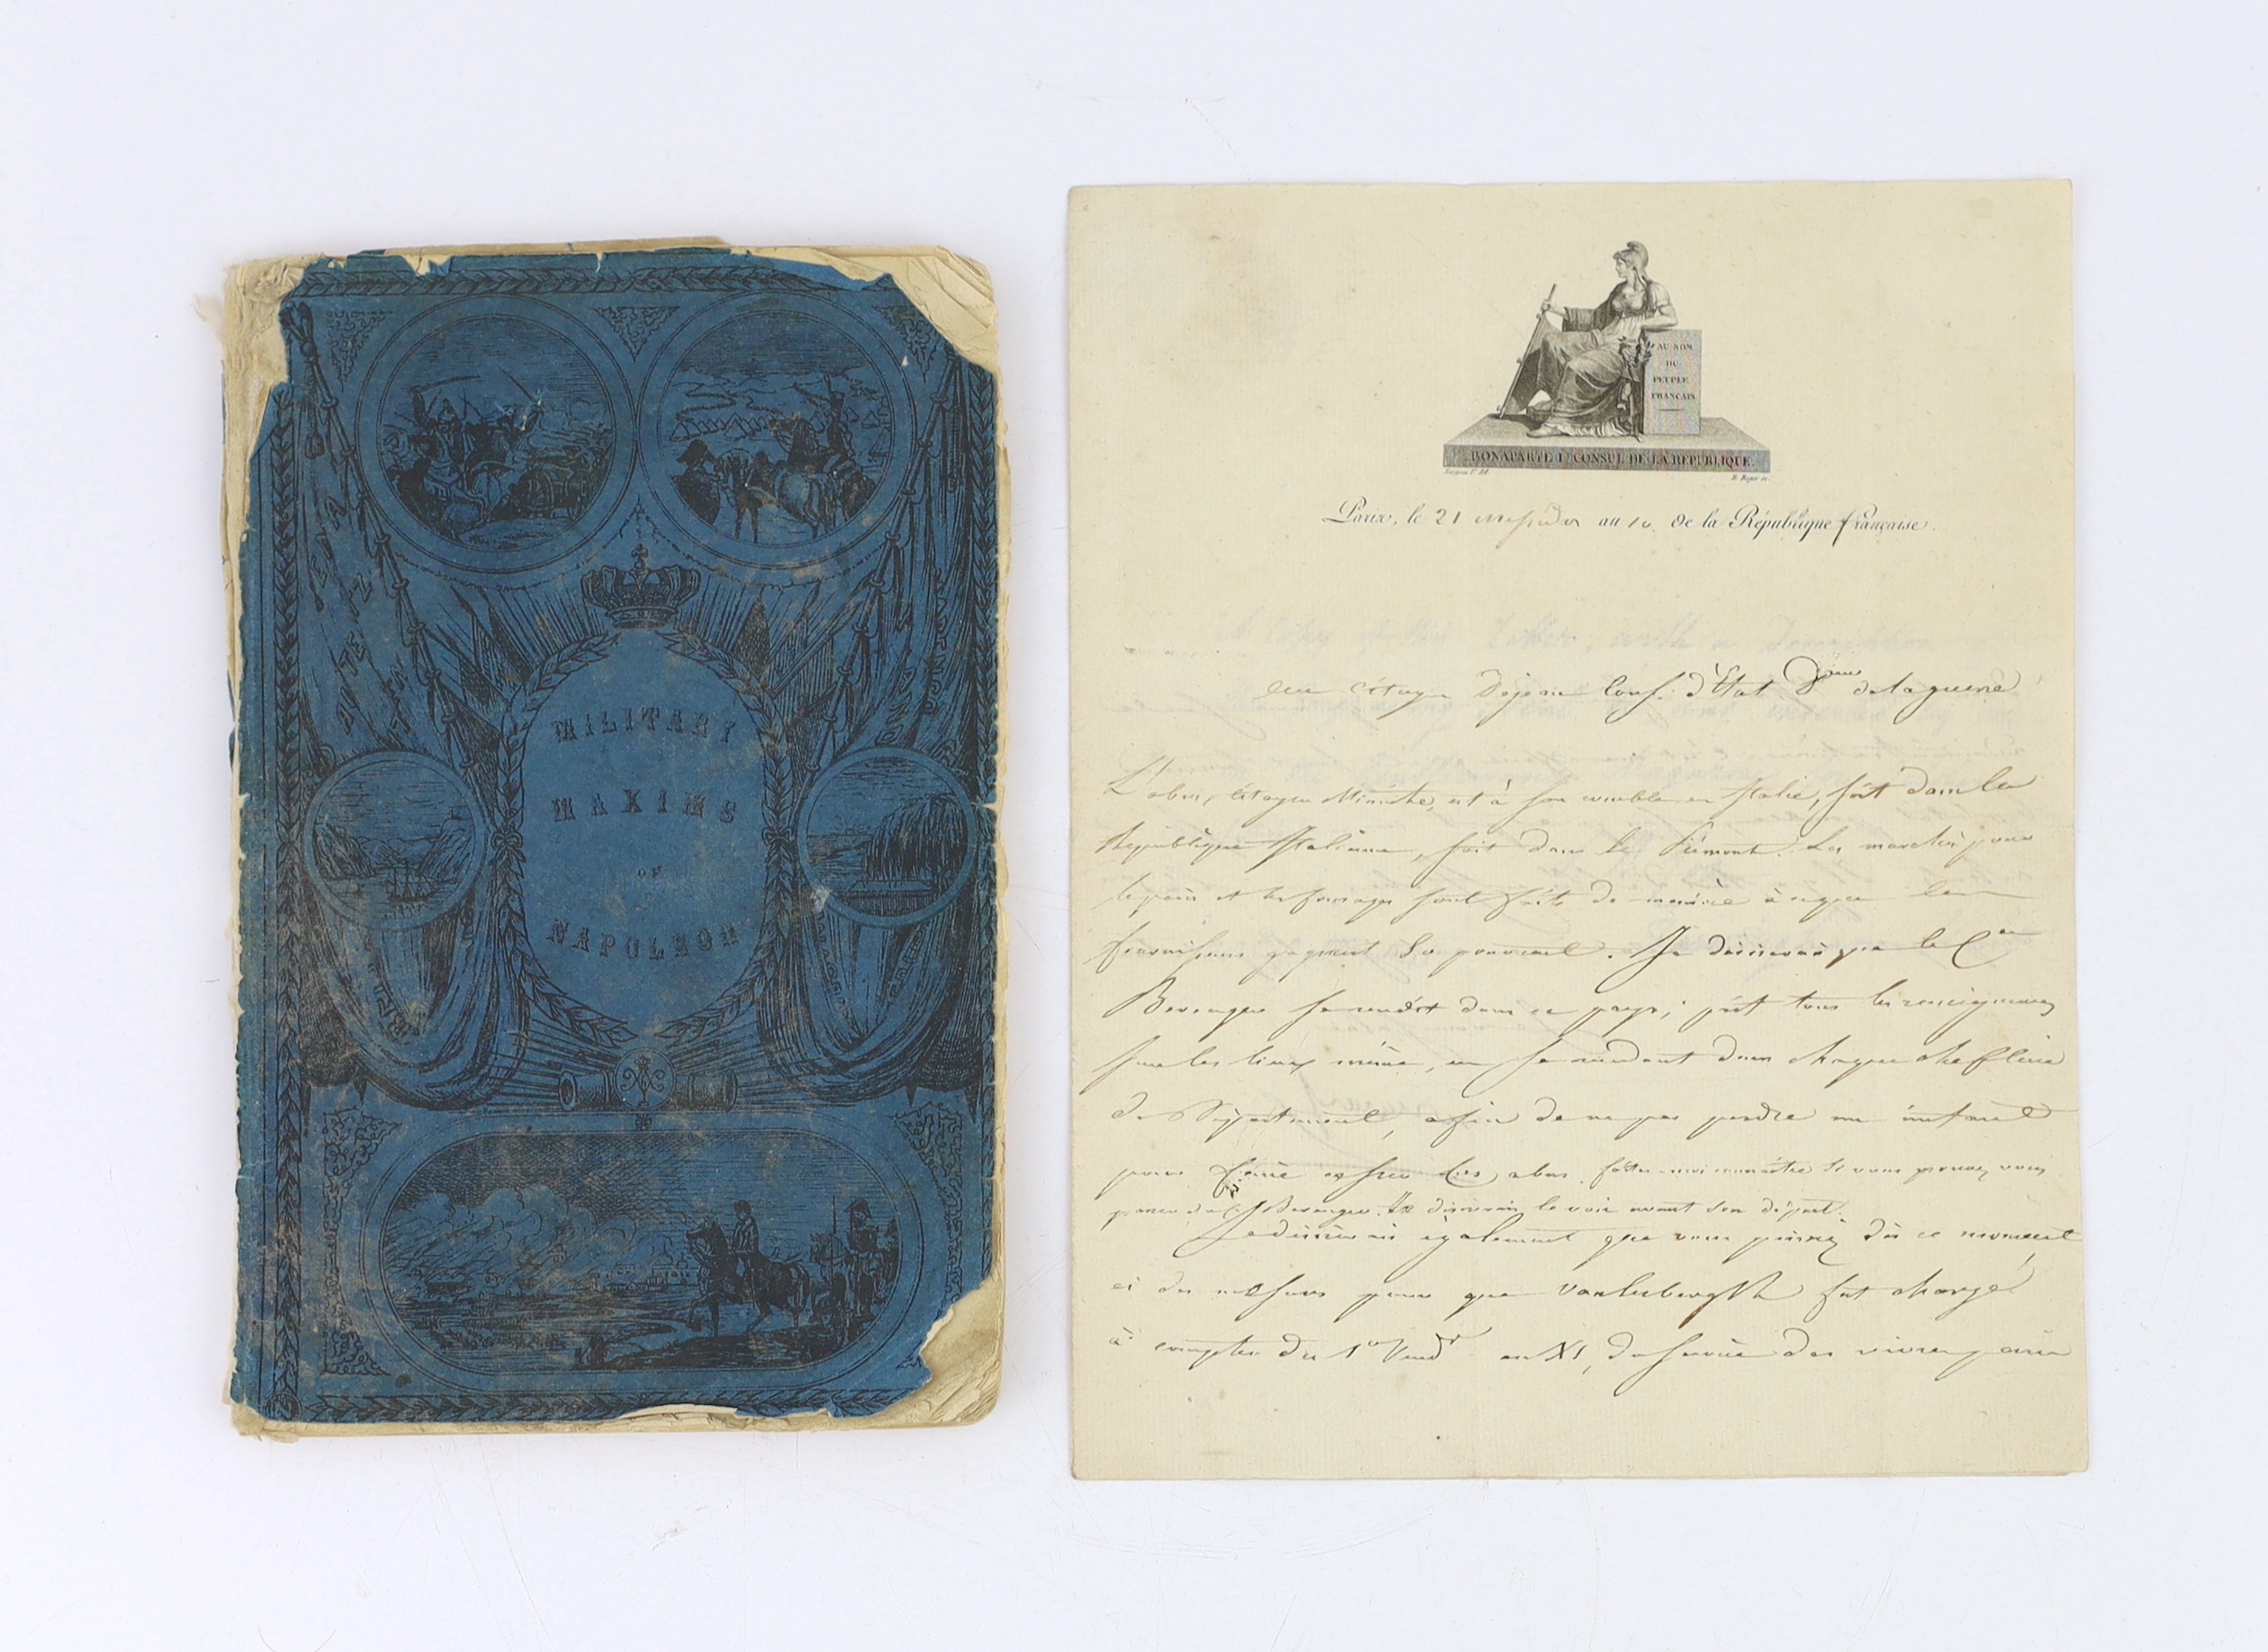 MILITARY
MAXIMS
OF
NAPOLEON
AU NOM
DU
PEUPLE
FRANÇAIS
BONAPARTE 1er CONSUL DE LA RÉPUBLIQUE.
B. Roger sc.
Paris, le 21 messidor an 10 de la République française.
au citoyen Dejean Cons. d'État delaguerre
L'abus, citoyen Ministre, est à son comble en Italie, soit dans la
République Italienne, soit dans le Piémont. Les marchés pour
le pain et les fourages sont faits de manière à ce que les
fournisseurs gagnent . Je désirerais que le Cen
Berenger se rendit dans ce pays; prit tous les renseignemens
sur les lieux même, en se rendant dans chaque chef lieu
de Département, afin de ne pas perdre un instant
pour faire cesser les abus. faites-moi connaître si vous pouvez vous
passer du C. Berenger. Je désirerais le voir avant son départ.
Je désirerais également que vous prissiez dès ce moment
ci des mesures pour que Vanlerberghe fut chargé
à compter du 1er Vendre an XI, du service des vivres pain